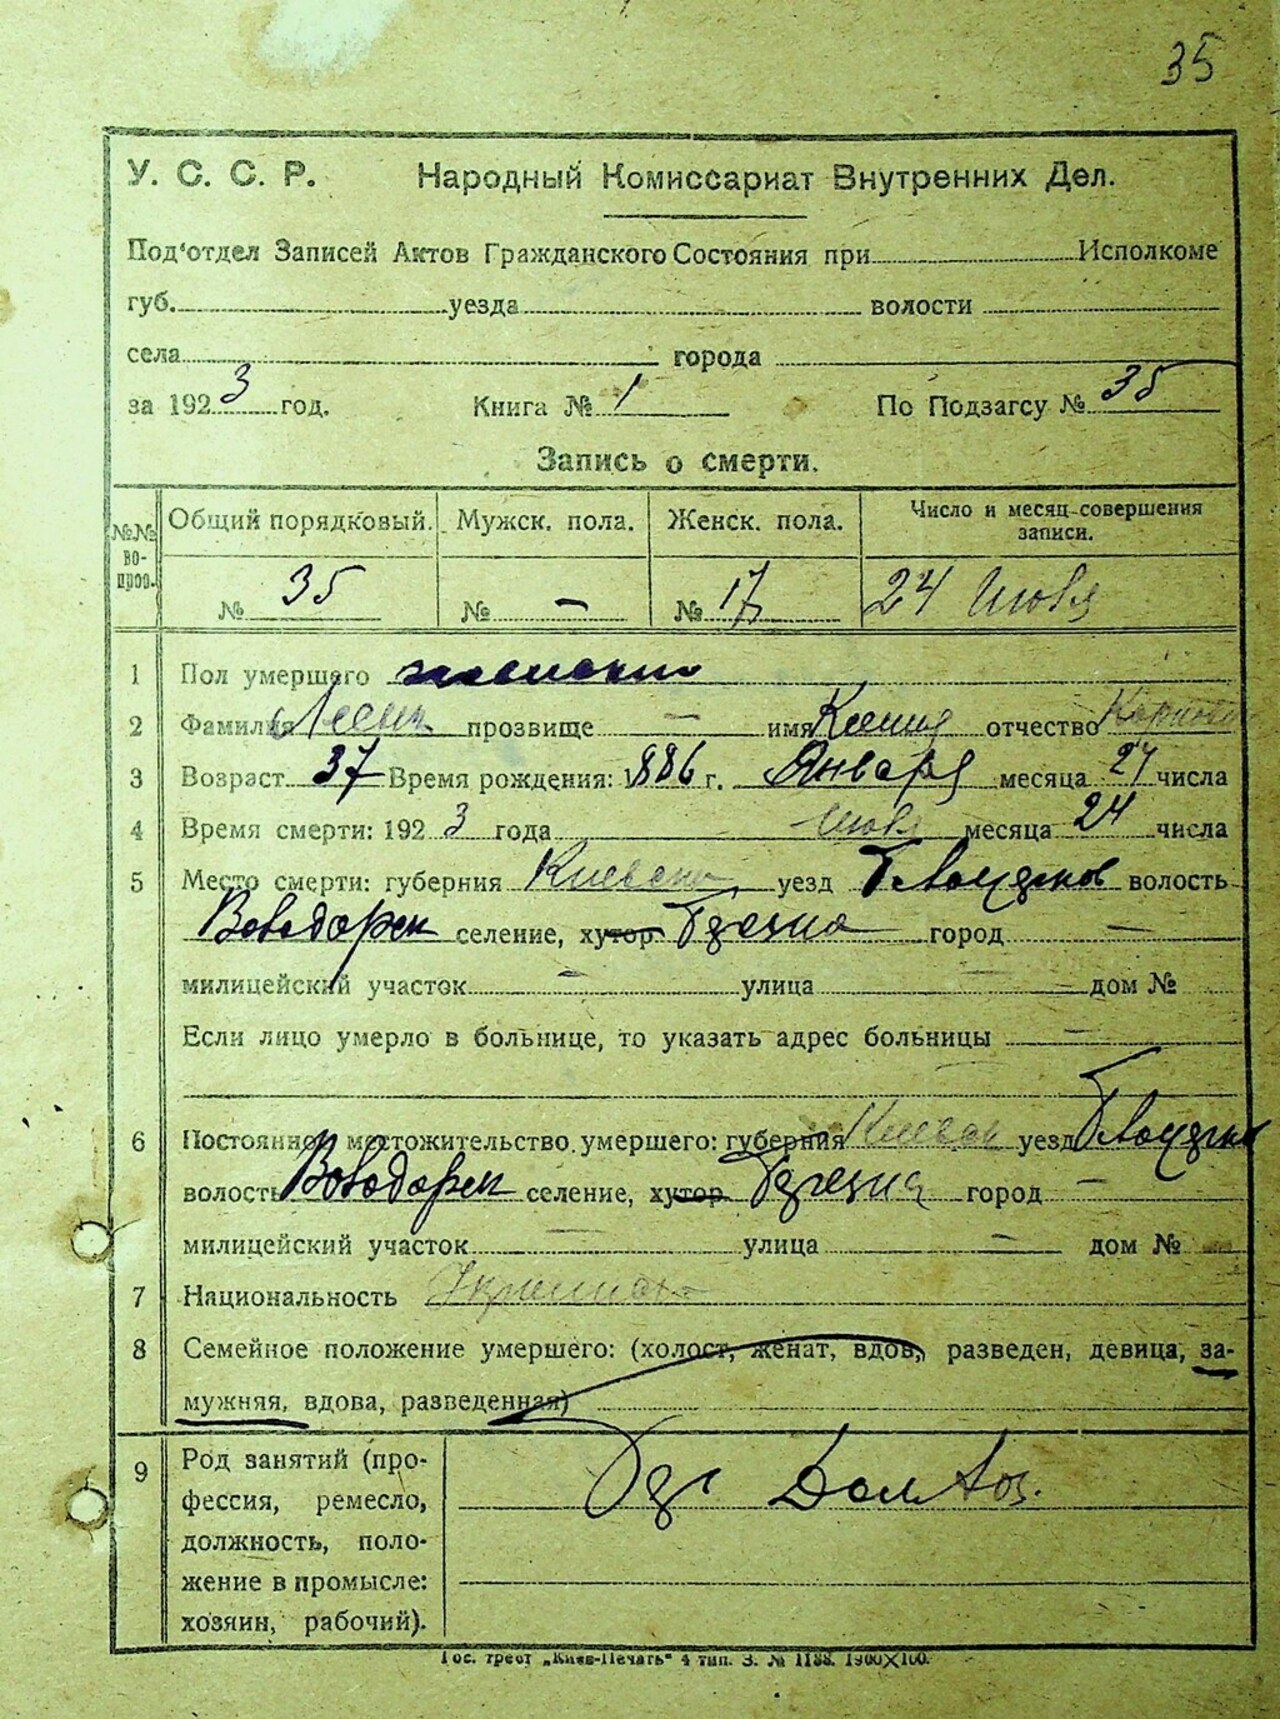 35
У. С. С. Р. Народный Комиссариат Внутренних Дел.
Под‘отдел Записей Актов Гражданского Состояния при Исполкоме
губ. уезда волости
села города
за 1923 год. Книга № 1 По Подзагсу № 35
Запись о смерти.
№№ во-прос. Общий порядковый. Мужск. пола. Женск. пола. Число и месяц совершения записи.
№ 35 № — № 17 24 Июля
1 Пол умершего женский
2 Фамилия прозвище — имя отчество
3 Возраст 37 Время рождения: 1886 г. Января месяца 27 числа
4 Время смерти: 1923 года Июля месяца 24 числа
5 Место смерти: губерния Киевская уезд волость
селение, хутор город —
милицейский участок — улица — дом №
Если лицо умерло в больнице, то указать адрес больницы —
6 Постоянное местожительство умершего: губерния Киевск уезд
волость селение, хутор город —
милицейский участок — улица — дом №
7 Национальность
8 Семейное положение умершего: (холост, женат, вдов, разведен, девица, за-
мужняя, вдова, разведенная)
9 Род занятий (про-
фессия, ремесло,
должность, поло-
жение в промысле:
хозяин, рабочий).
Гос. трест „Киев-Печать“ 4 тип. З. № 1188. 1900×100.